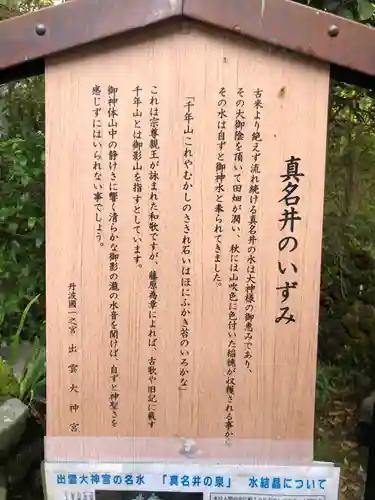 真名井のいずみ
古来より絶えず流れ続ける真名井の水は大神様の御恵みであり、
その大御陰を頂いて田畑が潤い、秋には山吹色に色付いた稲穂が収穫される事から
その水は自ずと御神水と奉られてきました。
「千年山これやむかしのさされ石いはほにふかき苔のいろかな」
これは宗尊親王が詠まれた和歌ですが、藤原為章によれば、古歌や旧記に載す
千年山とは御影山を指すとしています。
御神体山中の静けさに響く清らかな御影の瀧の水音を聞けば、自ずと神聖さを
感じずにはいられない事でしょう。
丹波國一之宮 出雲大神宮
出雲大神宮の名水 「真名井の泉」 水結晶について